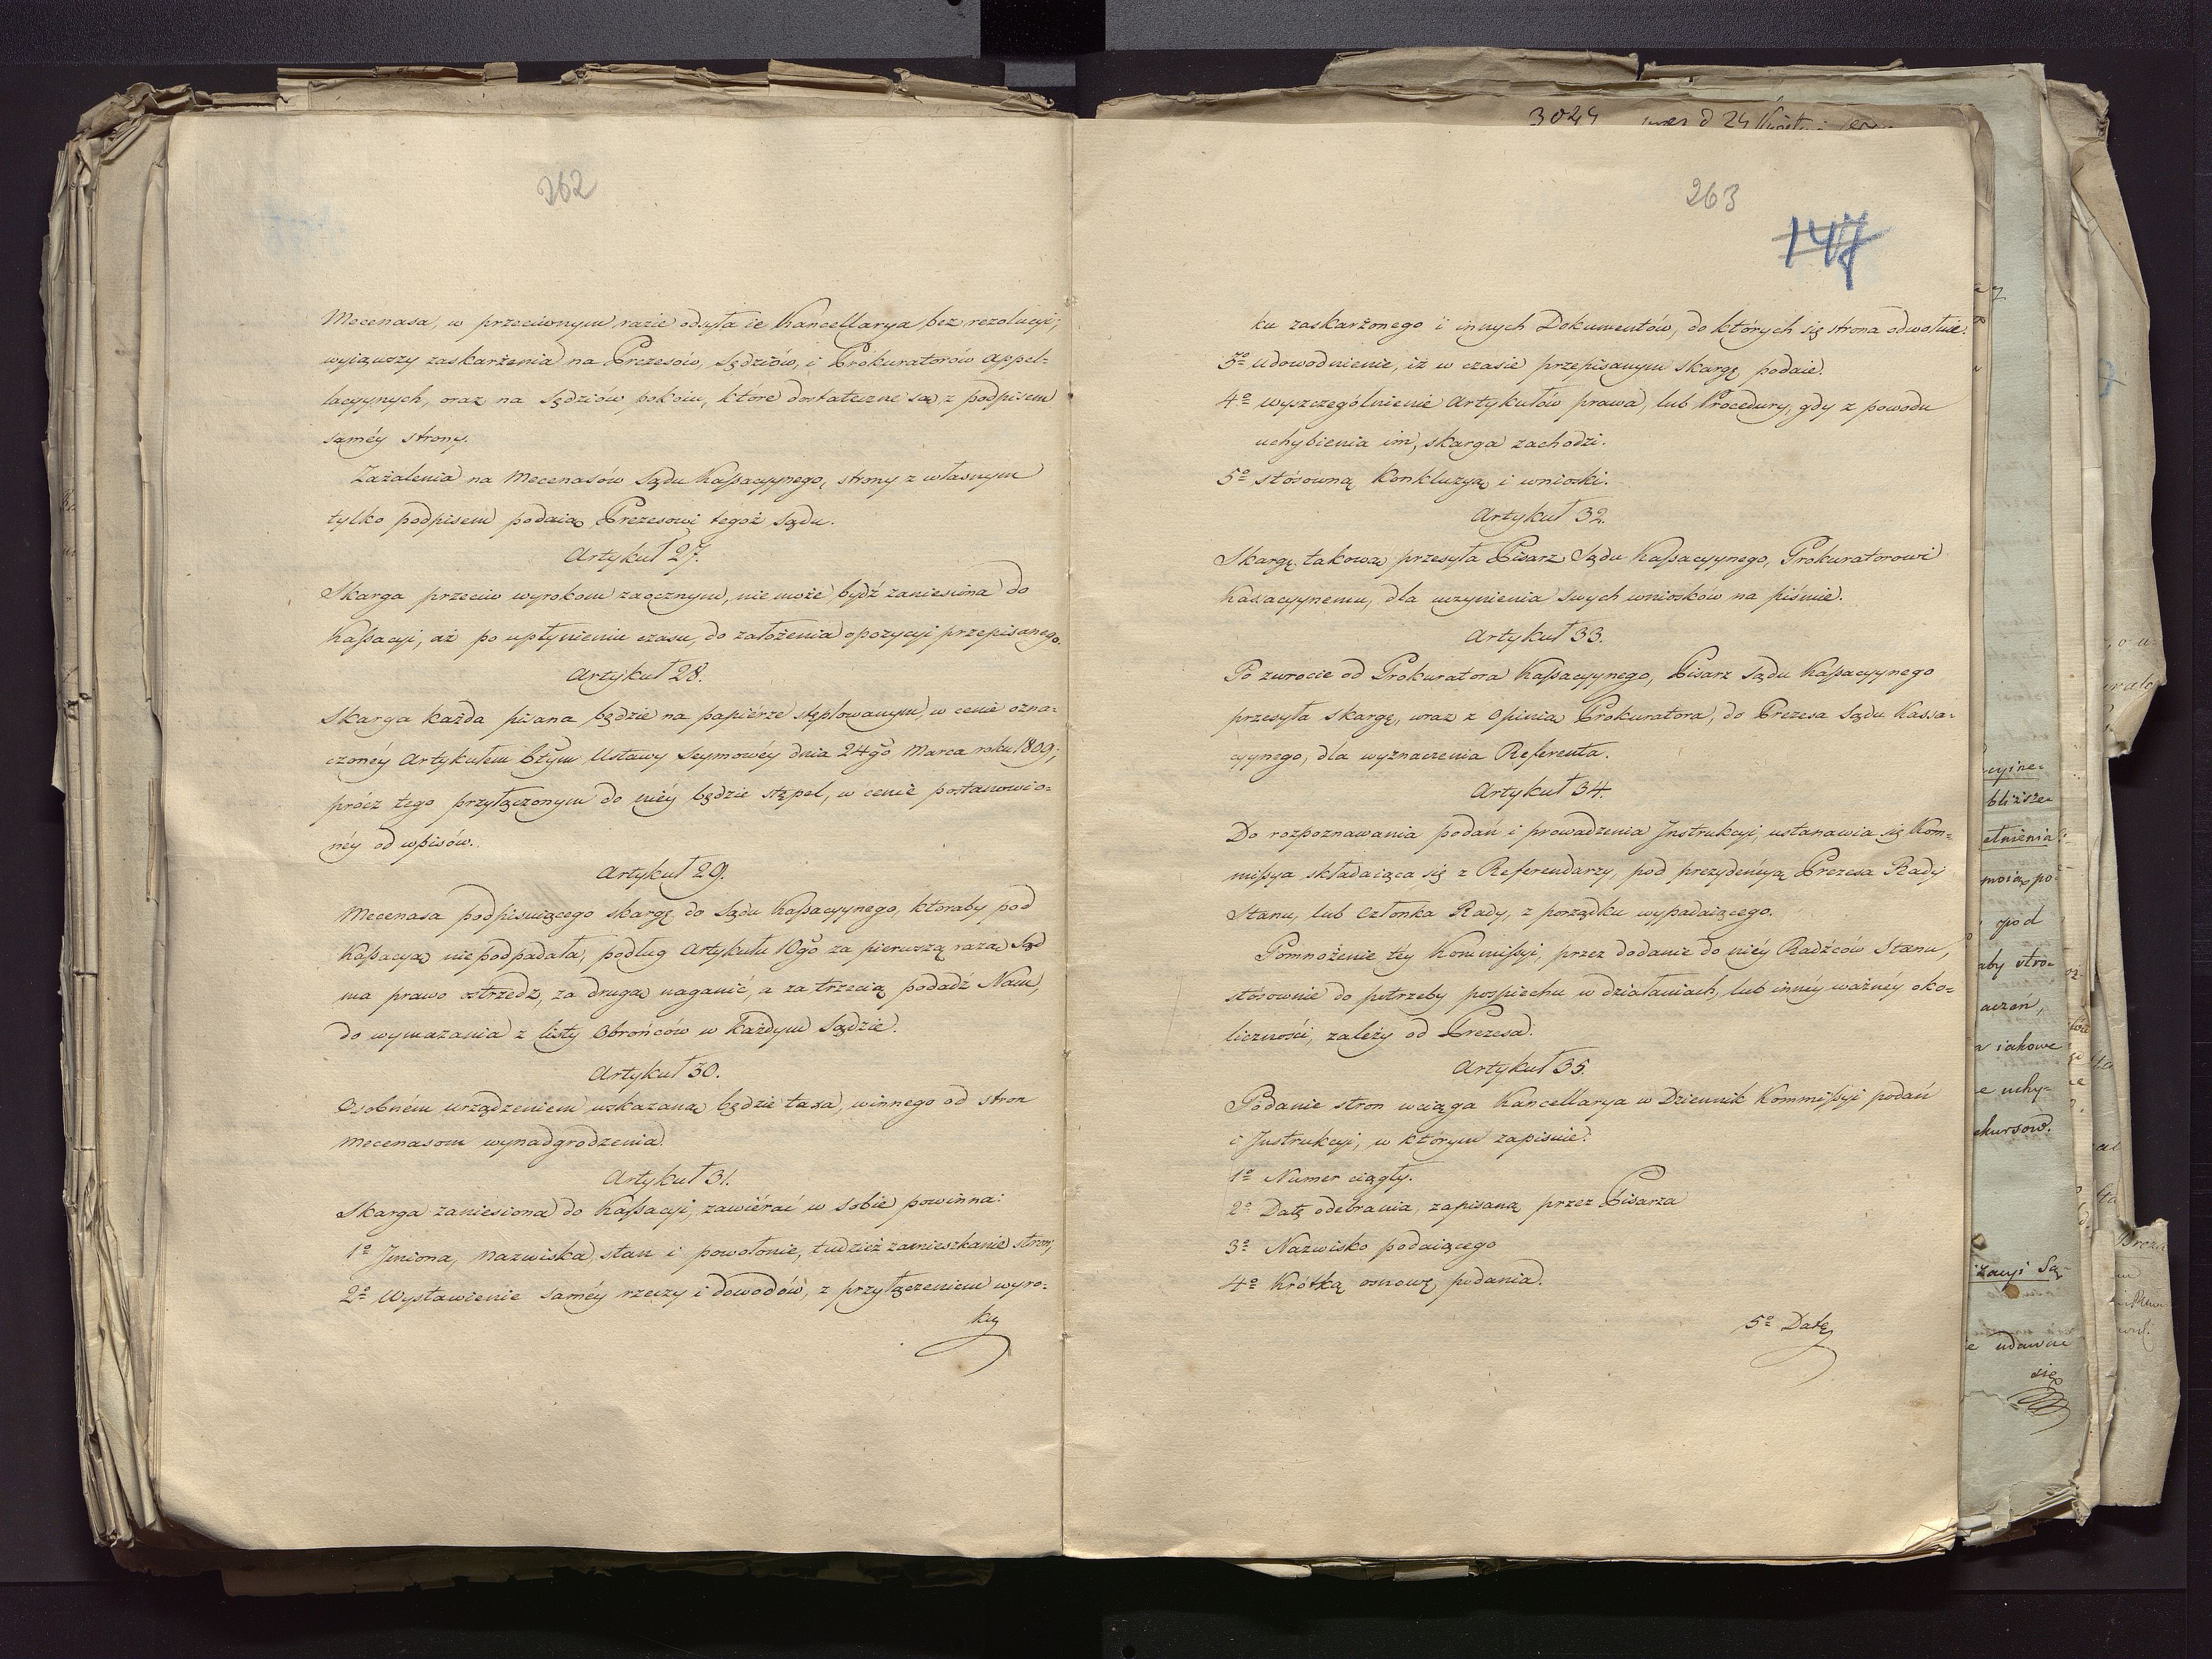 262
Mecenasa, w przeciwnym razie odsyła ie Kancellarya bez rezolucyi;
wyiąwszy zaskarżenia na Prezesów, Sędziów, i Prokuratorów appel-
lacyynych, oraz na Sędziów pokoiu, które dostateczne są z podpisem
saméy strony.
Zażalenia na Mecenasów Sądu Kassacyynego, strony z własnym
tylko podpisem podaią Prezesowi tegoż Sądu.
Artykuł 27.
Skarga przeciw wyrokom zaocznym, nie może bydź zaniesiona do
Kassacyi, aż po upłynieniu czasu, do założenia opozycyi przepisanego.
Artykuł 28.
Skarga każda pisana będzie na papiérze stęplowanym, w cenie ozna-
czonéy Artykułem 6tym Ustawy Seymowéy dnia 24go Marca roku 1809;
prócz tego przyłączonym do niéy będzie stępel, w cenie postanowio-
néy od wpisów.
Artykuł 29.
Mecenasa podpisuiącego skargę do Sądu Kassacyynego, któraby pod
Kassacyą nie podpadała, podług Artykułu 10go za pierwszą razą Sąd
ma prawo ostrzedz, za drugą naganić, a za trzecią podadź Nam,
do wymazania z listy Obrońców w każdym Sądzie.
Artykuł 30.
Osobném urządzeniem wskazaną będzie taxa, winnego od stron
Mecenasom wynadgrodzenia.
Artykuł 31.
Skarga zaniesiona do Kassacyi, zawiérać w sobie powinna:
1o Imiona, Nazwiska, stan i powołanie, tudzież zamieszkanie stron;
2o Wystawienie saméy rzeczy i dowodów, z przyłączeniem wyro-
ku
3024 24
263
147
ku zaskarżonego i innych Dokumentów, do których się strona odwołuie.
3o udowodnienie, iż w czasie przepisanym skargę podaie.
4o wyszczególnienie Artykułów prawa, lub Procedury, gdy z powodu
uchybienia im, skarga zachodzi.
5o stósowną Konkluzyą i wnioski.
Artykuł 32.
Skargę takową przesyła Pisarz Sądu Kassacyynego, Prokuratorowi
Kassacyynemu, dla uczynienia swych wniosków na piśmie.
Artykuł 33.
Po zwrocie od Prokuratora Kassacyynego, Pisarz Sądu Kassacyynego
przesyła skargę, wraz z Opinią Prokuratora, do Prezesa Sądu Kassa-
cyynego, dla wyznaczenia Referenta.
Artykuł 34.
Do rozpoznawania podań i prowadzenia Instrukcyi, ustanawia się Kom-
missya składaiąca się z Referendarzy, pod prezydencyą Prezesa Rady
Stanu, lub Członka Rady, z porządku wypadaiącego.
Pomnożenie téy Kommissyi, przez dodanie do niéy Radźców Stanu,
stósownie do potrzeby pospiechu w działaniach, lub innéy ważnéy oko-
liczności, zależy od Prezesa.
Artykuł 35.
Podanie stron wciąga Kancellarya w Dziennik Kommissyi podań
i Instrukcyi, w którym zapisuie:
1o Numer ciągły.
2o Datę odebrania, zapisaną przez Pisarza
3o Nazwisko podaiącego
4o Krótką osnowę podania.
5o Datę
cyine-
bliższe-
ełnienia
pod
aby stro-
iakowe
e uchy-
ekursow.
się